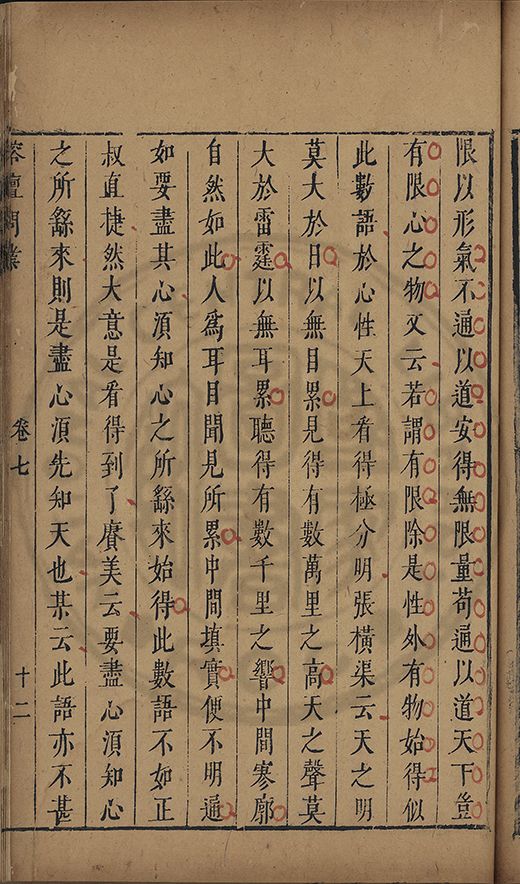 限以形氣不通以道安得無限量苟通以道天下豈
有限心之物又云若謂有限除是性外有物始得似
此數語於心性天上看得極分明張橫渠云天之明
莫大於日以無目累見得有數萬里之高天之聲莫
大於雷霆以無耳累聽得有數千里之響中間寥廓
自然如此人爲耳目聞見所累中間填實便不明通
如要盡其心湏知心之所繇來始得此數語不如正
叔直捷然大意是看得到了賡美云要盡心湏知心
之所繇來則是盡心湏先知天也某云此語亦不甚
榕壇問業
卷七
十二